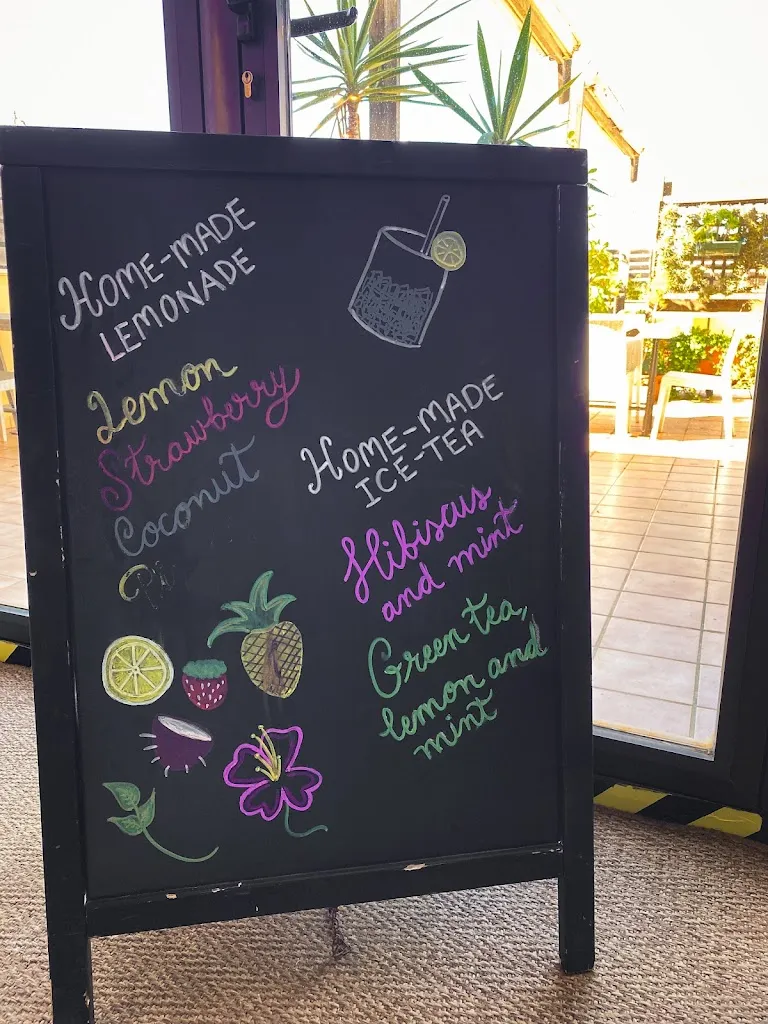 HOME-MADE
LEMONADE
Lemon
Strawberry
Coconut
HOME-MADE
ICE-TEA
Hibiscus
and mint
Green tea,
lemon and
mint